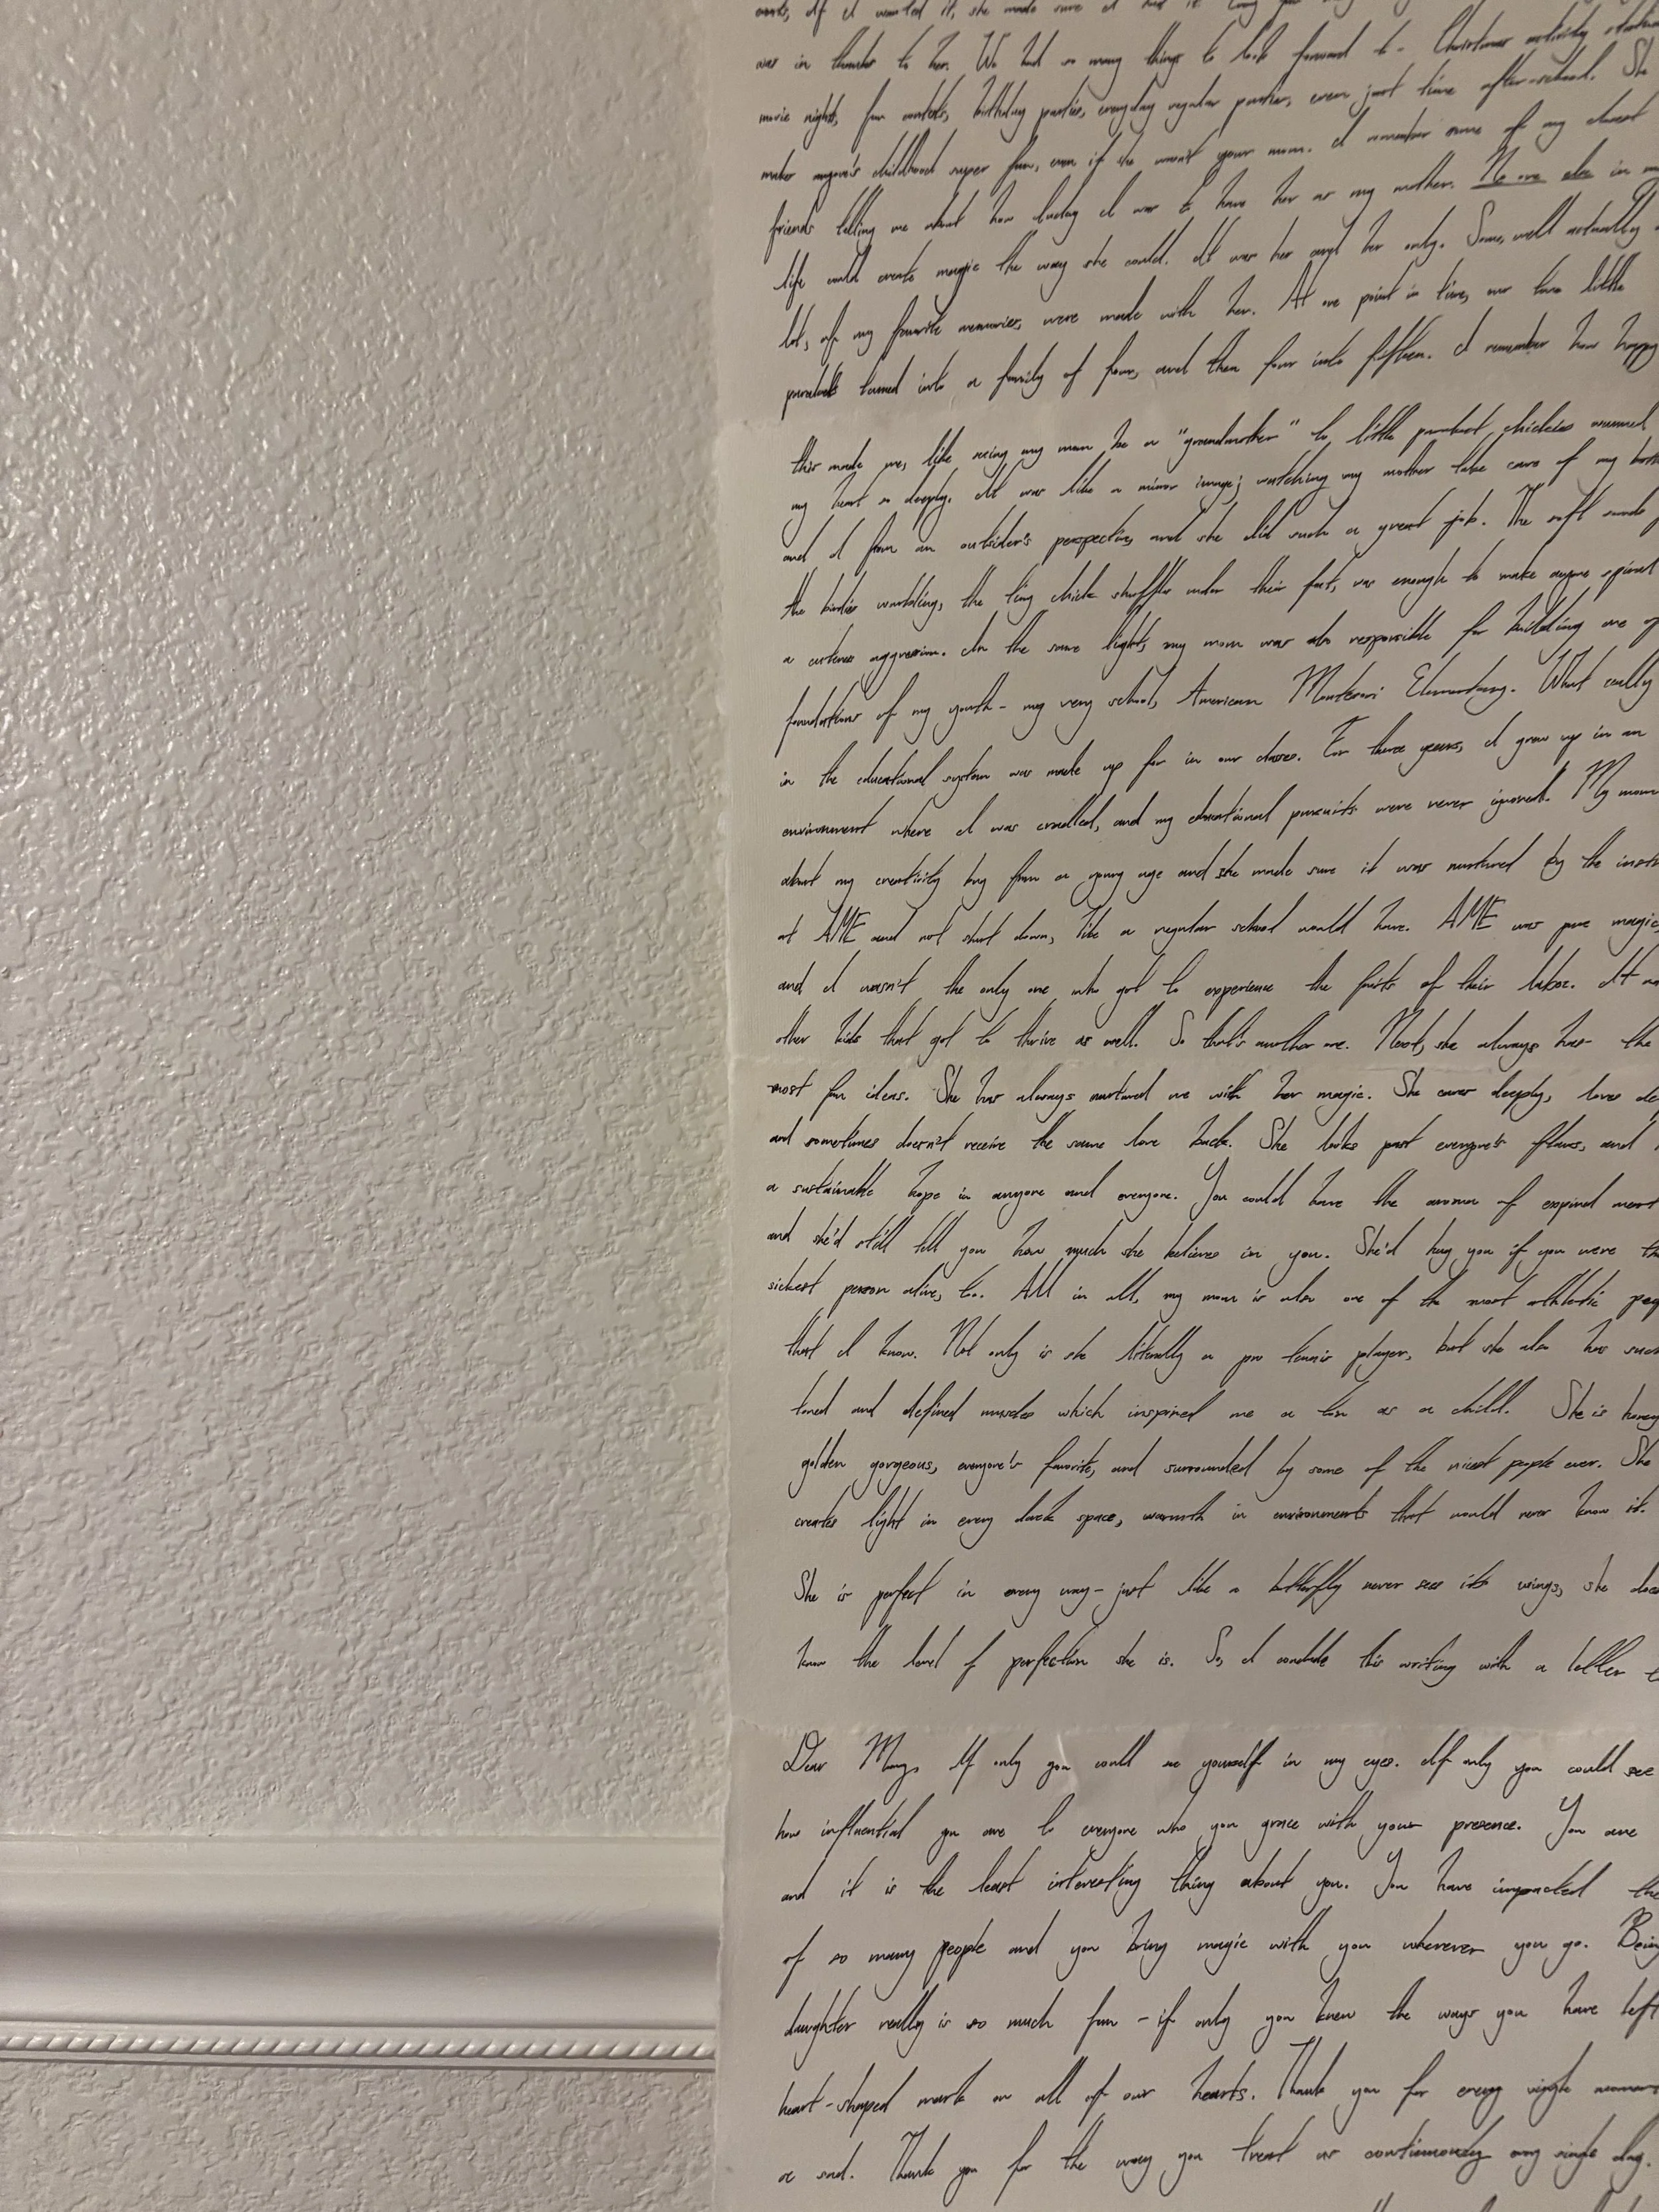 wants, if I wanted it, she made sure I had it.
was in thanks to her. We had so many things to look forward to - Christmas activity
movie nights, fun contests, birthday parties, everyday regular parties, even just time after-school. She
makes anyone's childhood super fun, even if she wasn't your mom. I remember some of my closest
friends telling me about how lucky I was to have her as my mother. No one else in
life could create magic the way she could. It was her and her only. Some, well actually a
lot, of my favorite memories, were made with her. At one point in time, our two little
parakeets turned into a family of four, and then four into fifteen. I remember how happy
this made me, like seeing my mom be a "grandmother" to little parakeet chickies
my heart so deeply. It was like a mirror image; watching my mother take care of my
and I from an outsider's perspective, and she did such a great job. The soft
the birdies warbling, the tiny chick shuffles under their feet, was enough to make anyone spiral
a cuteness aggression. In the same light, my mom was also responsible for building one of
foundations of my youth - my very school, American Montessori Elementary. What
in the educational system was made up for in our classes. For these years, I grew up in an
environment where I was cradled, and my educational pursuits were never ignored. My mom
about my creativity bug from a young age and she made sure it was nurtured by the
at AME and not shut down, like a regular school would have. AME was pure magic,
and I wasn't the only one who got to experience the fruits of their labor. It
other kids that got to thrive as well. So that's another one. Next, she always has the
most fun ideas. She has always nurtured me with her magic. She cares deeply, loves
and sometimes doesn't receive the same love back. She looks past everyone's flaws, and
a sustainable hope in anyone and everyone. You could have the aroma of expired meat
and she'd still tell you how much she believes in you. She'd hug you if you were
sickest person alive, too. All in all, my mom is also one of the most athletic
that I know. Not only is she literally a pro tennis player, but she also has such
toned and defined muscles which inspired me a ton as a child. She is
golden gorgeous, everyone's favorite, and surrounded by some of the nicest people ever. She
creates light in every dark space, warmth in environments that would never know it.
She is perfect in every way - just like a butterfly never sees its wings, she
know the level of perfection she is. So, I conclude this writing with a letter
Dear Mom, If only you could see yourself in my eyes. If only you could see
how influential you are to everyone who you grace with your presence. You are
and it is the least interesting thing about you. You have impacted the
of so many people and you bring magic with you wherever you go. Being
daughter really is so much fun - if only you knew the ways you have left
heart-shaped mark on all of our hearts. Thank you for every single
Thank you for the way you treat us continuously every single day.